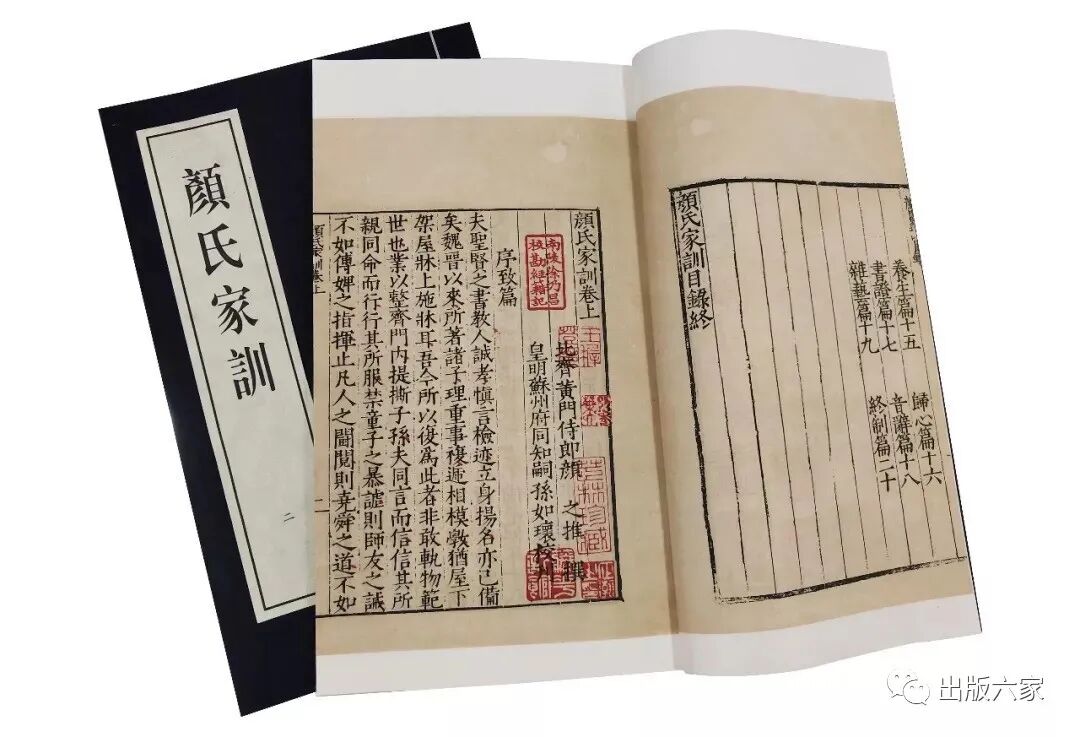 顏氏家訓
二
養生篇十五 歸心篇十六
書證篇十七 音辭篇十八
雜藝篇十九 終制篇二十
顏氏家訓目錄終
顏氏家訓卷上
北齊黃門侍郎顏 之推 撰
皇明蘇州府同知嗣孫如瓌校刊
南陵徐乃昌
校勘經籍記
序致篇
夫聖賢之書教人誠孝慎言檢迹立身揚名亦已備
矣魏晉以來所著諸子理重事複遞相模斆猶屋下
架屋牀上施牀耳吾今所以復為此者非敢軌物範
世也業以整齊門內提撕子孫夫同言而信信其所
親同命而行行其所服禁童子之暴謔則師友之誡
不如傅婢之指揮止凡人之鬭鬩則堯舜之道不如
顏氏家訓卷上
出版六家